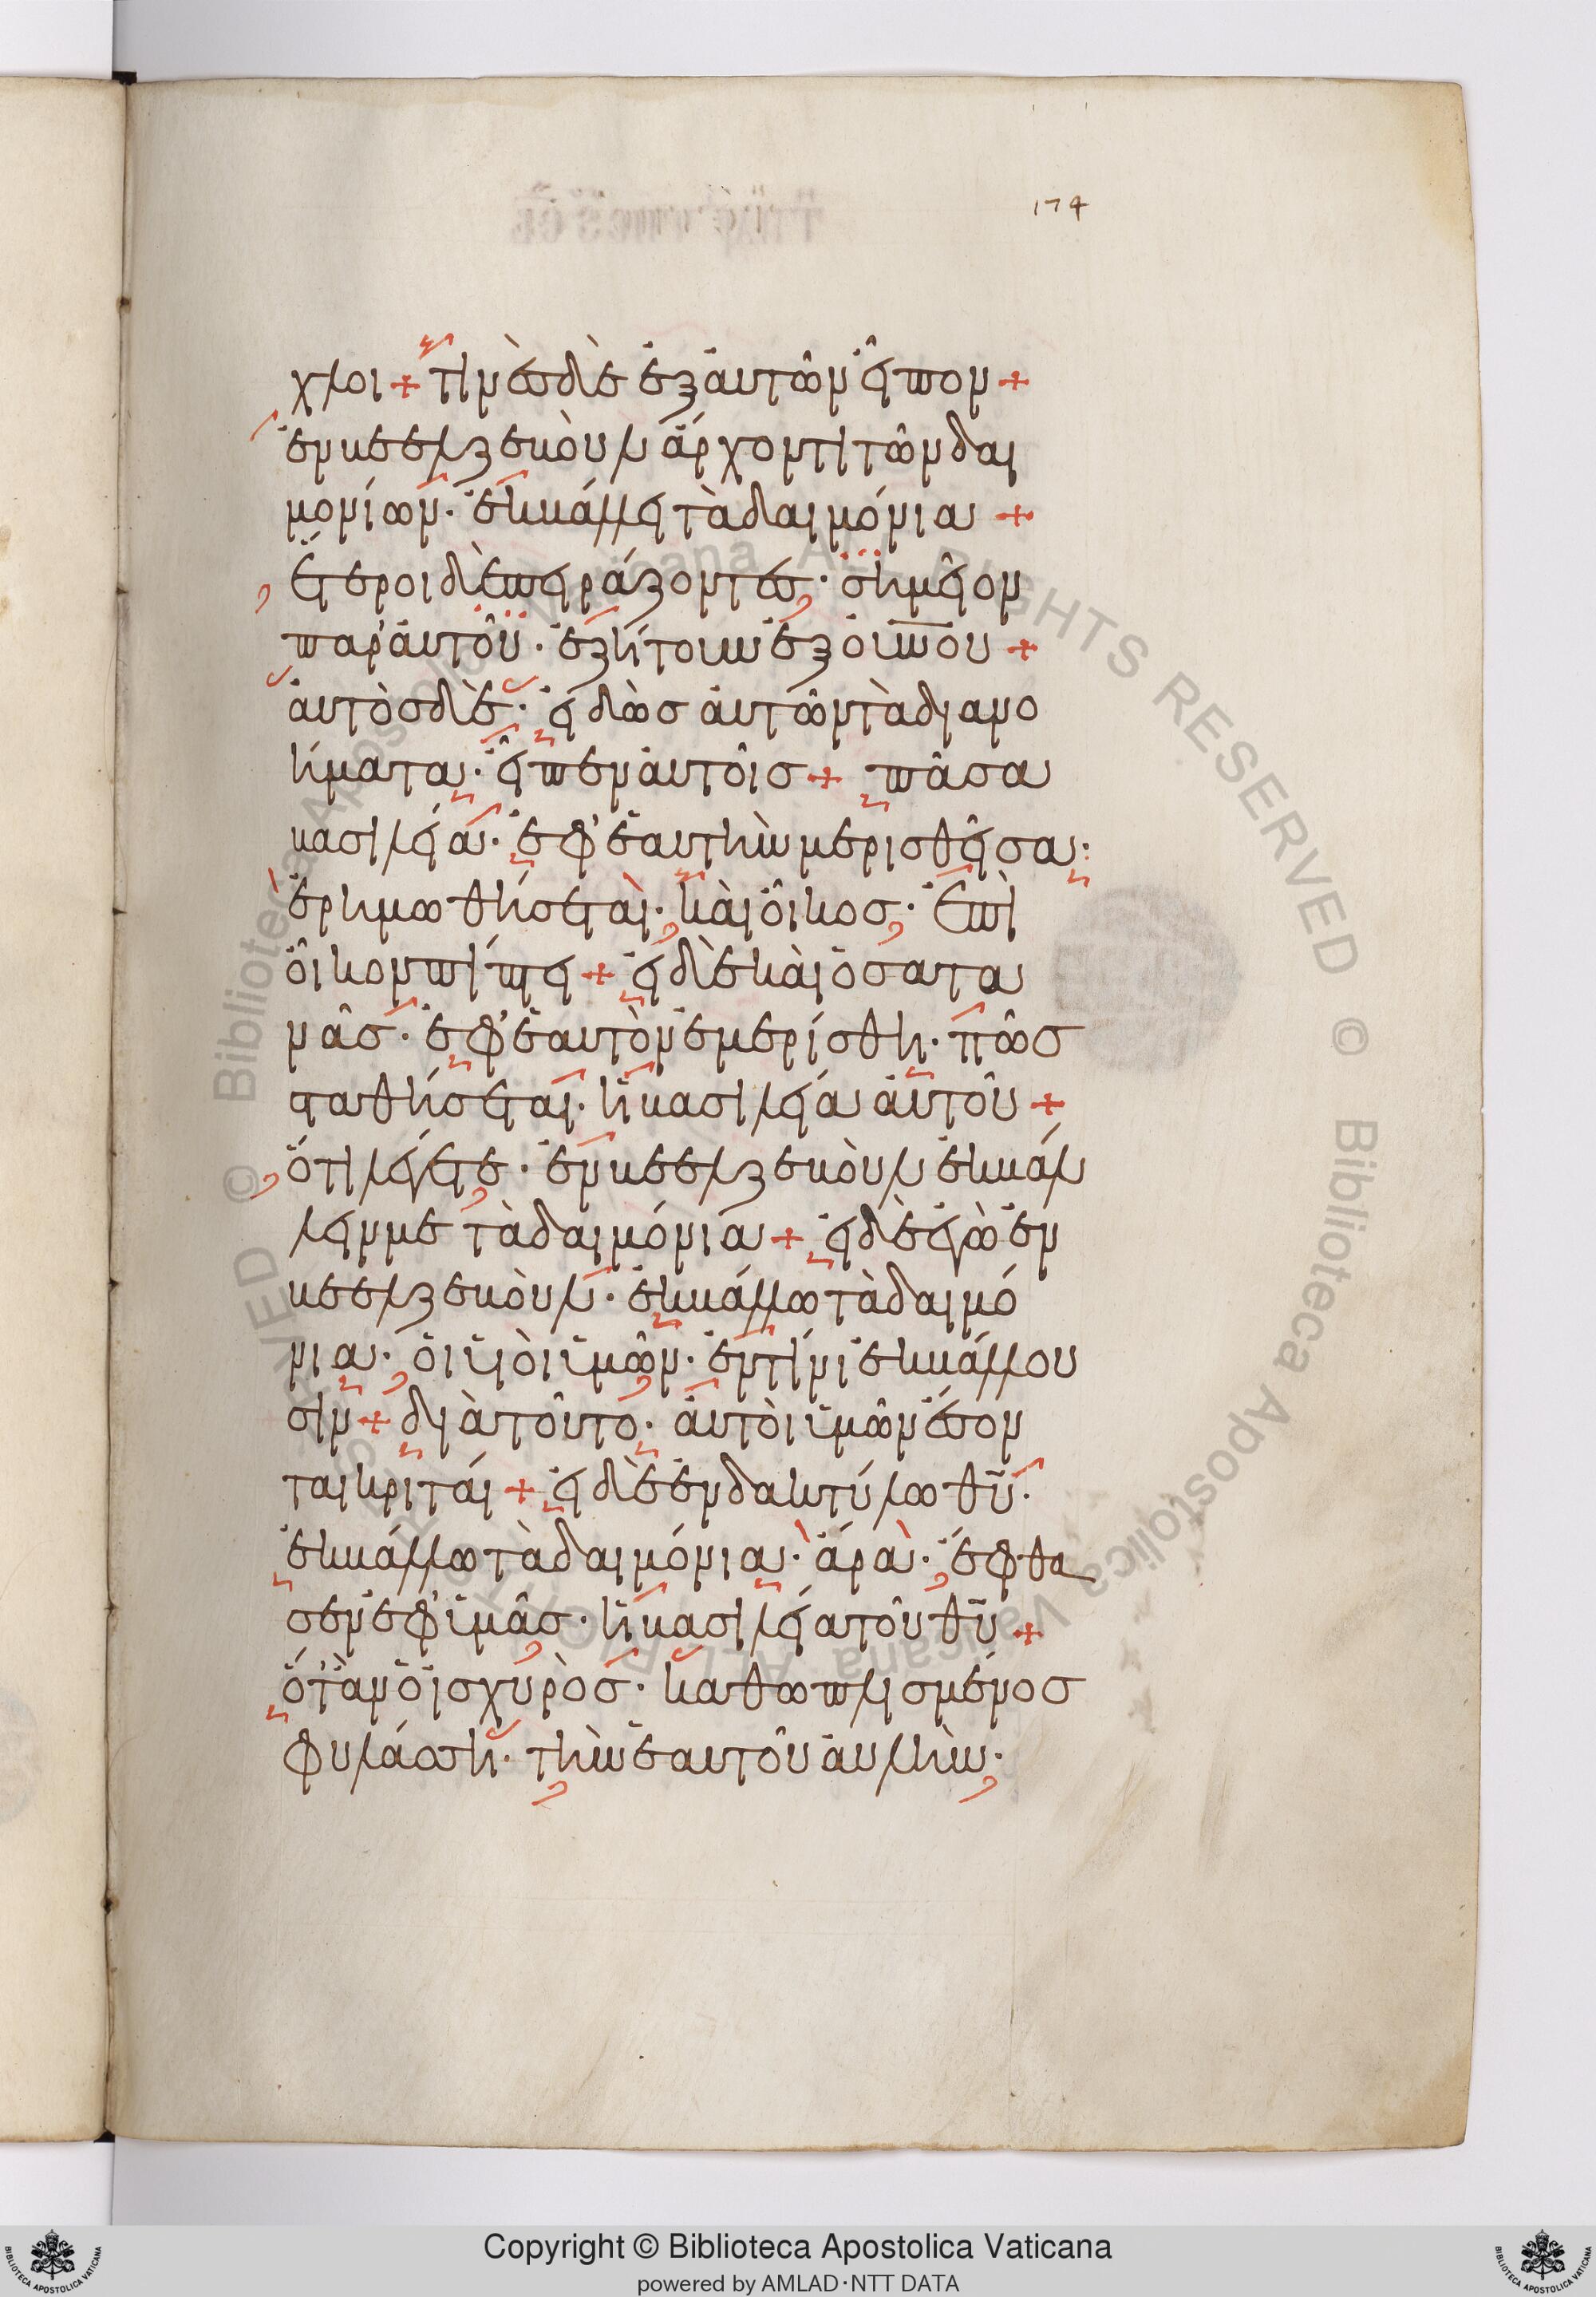 174
χλοι + τινὲσ δὲ ἐξ ἀυτῶν ἔιπον +
ἐν βεελζεβοὺλ ἄρχοντι τῶν δαι
μονίων· ἐκβάλλει τὰ δαιμόνια +
ἕτεροι δὲ πειράζοντεσ· σημεῖον
παρ' ἀυτοῦ· ἐζήτουν ἐξ ὀυνου +
ἀυτὸσ δὲ· ἐιδὼσ ἀυτῶν τὰ διανο
ήματα· ἔιπεν ἀυτοῖσ + πᾶσα
βασιλεία· ἐφ' ἑαυτὴν μερισθεῖσα·
ἐρημωθήσεται· καὶ ὄικοσ· ἐπὶ
ὄικον πίπτει + ἐι δὲ καὶ ὁ σατα
νᾶσ· ἐφ' ἑαυτὸν ἐμερίσθη· πῶσ
σταθήσεται· ἡ βασιλεία ἀυτοῦ +
ὅτι λέγετε· ἐν βεελζεβοὺλ ἐκβάλ
λειν με τὰ δαιμόνια + ἐι δὲ ἐγὼ ἐν
βεελζεβοὺλ· ἐκβάλλω τὰ δαιμό
νια· ὁι ϋιὸι ϋμῶν· ἐν τίνι ἐκβάλλου
σιν + διὰ τοῦτο· ἀυτὸι ϋμῶν ἔσον
ται κριταί + ἐι δὲ ἐν δακτύλω θυ·
ἐκβάλλω τὰ δαιμόνια· ἄρα· ἔφθα
σεν ἐφ' ϋμᾶσ· ἡ βασιλεία τοῦ θυ +
ὅτ' ἂν ὁ ϊσχυρὸσ· καθωπλισμένοσ
φυλάσση· τὴν ἑαυτοῦ ἀυλὴν·
Copyright © Biblioteca Apostolica Vaticana
powered by AMLAD·NTT DATA